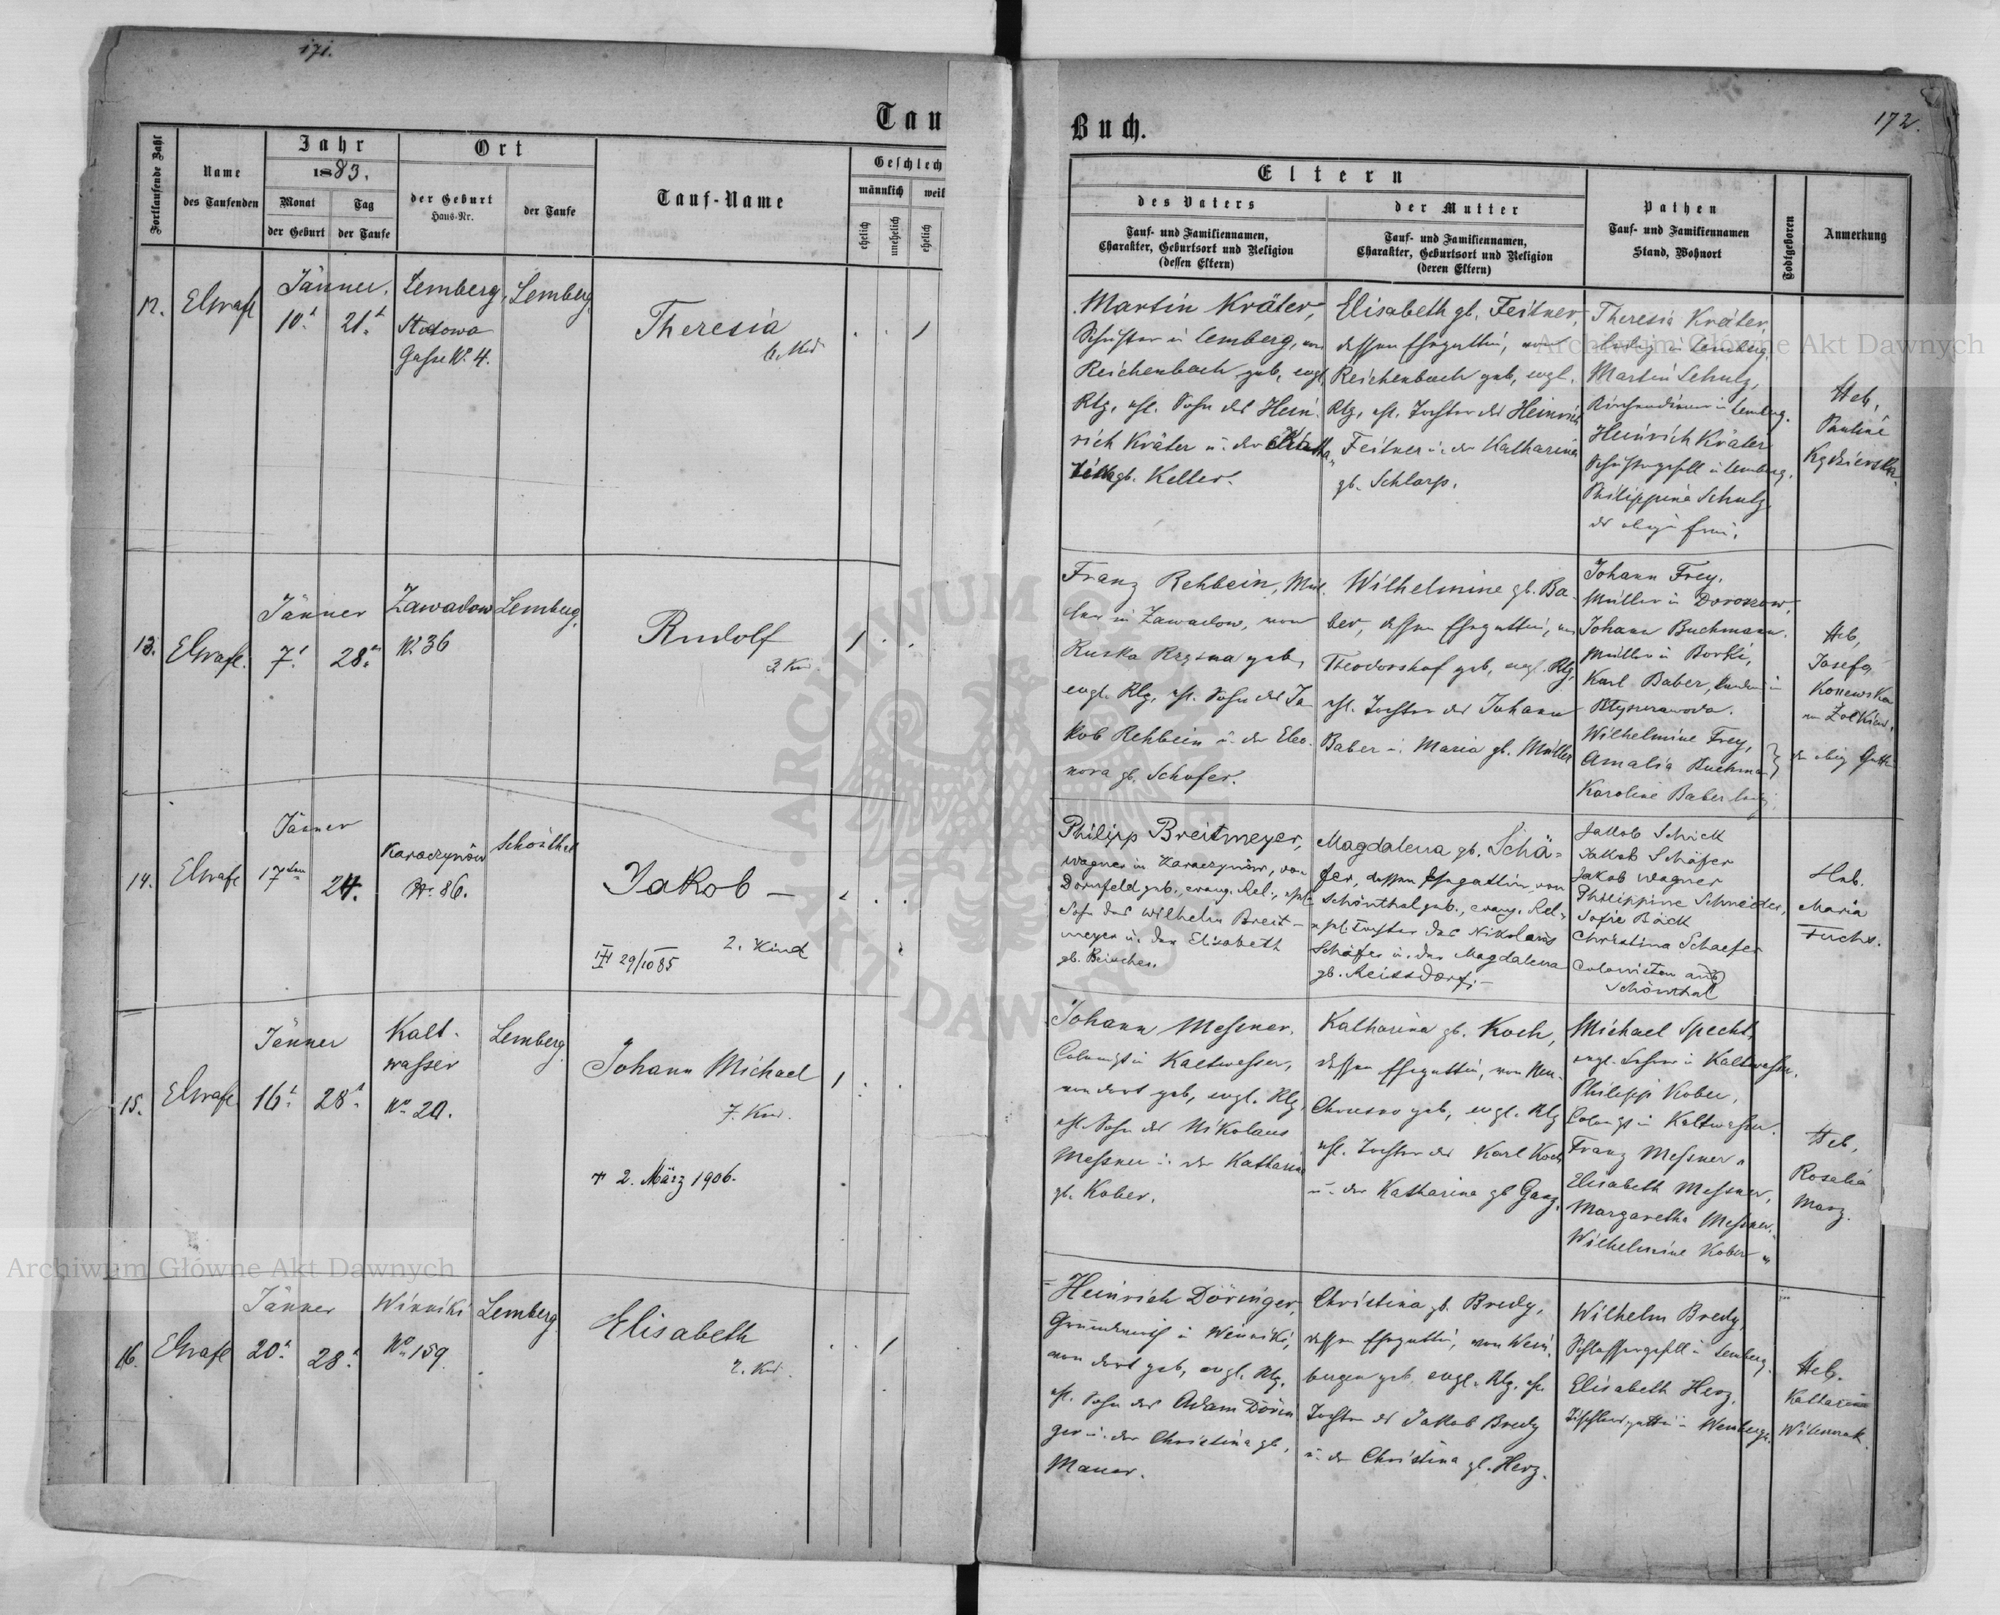 171.
Tau
Fortlaufende Zahl
Name
des Taufenden
Jahr
1883.
Monat
der Geburt
Tag
der Taufe
Ort
der Geburt
Haus-Nr.
der Taufe
Tauf-Name
Geschlech
männlich
weib
ehelich
unehelich
ehelich
12.
Jänner
10t
21t
Lemberg,
Gasse No 4.
Lemberg.
Theresia
13.
Jänner
7t
28t
Zawadow
No 36
Lemberg.
Rudolf
3. Kind
14.
Jänner
17ten
24.
Karaczynów
Nr. 86.
Schönthal
Jakob —
2. Kind
29/10 85
15.
Jänner
16t
28t
Kalt-
wasser
No 20.
Lemberg.
Johann Michael
7. Kind.
† 2. März 1906.
16.
Jänner
20t
28t
Winniki
No 159
Lemberg.
Elisabeth
Buch.
172.
Eltern
des Vaters
Tauf- und Familiennamen,
Charakter, Geburtsort und Religion
(dessen Eltern)
der Mutter
Tauf- und Familiennamen,
Charakter, Geburtsort und Religion
(deren Eltern)
Pathen
Tauf- und Familiennamen
Stand, Wohnort
Todtgeboren
Anmerkung
Martin Kräter,
Schuster in Lemberg, von
Reichenbach geb, evgl.
Rlg, ehl. Sohn des Hein-
rich Kräter u. der
gb. Keller.
Elisabeth gb. Feitner,
dessen Ehegattin, von
Reichenbach geb, evgl.
Rlg, ehl. Tochter des Heinrich
Feitner u. der Katharina
gb. Schlarp.
Theresia Kräter,
ledig in Lemberg,
Martin Schulz,
in Lemberg.
Heinrich Kräter
Schustergesell in Lemberg.
Philippina Schulz,
Heb.
Pauline
Franz Rehbein, Mül-
ler in Zawadow, von
Ruska geb,
evgl. Rlg, ehl. Sohn des Ja-
kob Rehbein u. der Eleo-
nora gb. Schafer.
Wilhelmine gb. Ba-
ber, dessen Ehegattin, von
Theodorshof geb, evgl. Rlg,
ehl. Tochter des Johann
Baber u. Maria gb. Müller
Johann Frey,
Müller in Doroszow,
Johann Buchmann
Müller in Borki,
Karl Baber,
Wilhelmine Frey,
Amalia Buchman
Karoline Baber ledig.
Heb,
Josefa
Konewska
Philipp Breitmeyer,
Wagner in Karaczynów, von
Dornfeld geb., evang. Rel., ehel.
Sohn des Wilhelm Breit-
meyer u. der Elisabeth
Magdalena gb. Schä-
fer, dessen Ehegattin von
Schönthal geb., evang. Rel.
ehel. Tochter des Nikolaus
Schäfer u. der Magdalena
gb. Reissdorf.
Jakob Schick
Jakob Schäfer
Jakob Wagner
Philippine Schneider,
Sofie Bäck
Christina Schaefer
Colonisten aus
Schönthal
Heb.
Maria
Fuchs.
Johann Messner,
Colonist in Kaltwasser,
von dort geb, evgl. Rlg,
ehl. Sohn des Nikolaus
Messner u. der Katharina
gb. Kober.
Katharina gb. Koch,
dessen Ehegattin, von Neu-
Chrusno geb, evgl. Rlg
ehl. Tochter des Karl Koch
u. der Katharina gb Ganz.
Michael Specht,
evgl. Lehrer in Kaltwasser.
Philipp Kober,
Colonist in Kaltwasser.
Franz Messner "
Elisabeth Messner,
Margaretha Messner.
Wilhelmine Kober "
Heb,
Rosalia
Marz.
Heinrich Döringer,
Grundwirth in Winniki,
von dort geb, evgl. Rlg,
ehl. Sohn des Adam Dörin-
ger u. der Christina gb,
Mauer.
Christina gb. Bredy,
dessen Ehegattin, von Wein-
bergen geb, evgl. Rlg, ehl.
Tochter des Jakob Bredy
u. der Christina gb. Herz.
Wilhelm Bredy,
Schlossergesell in Lemberg.
Elisabeth Herz,
Tischlersgattin in Weinbergen.
Heb.
Katharina
Archiwum Główne Akt Dawnych
Archiwum Główne Akt Dawnych